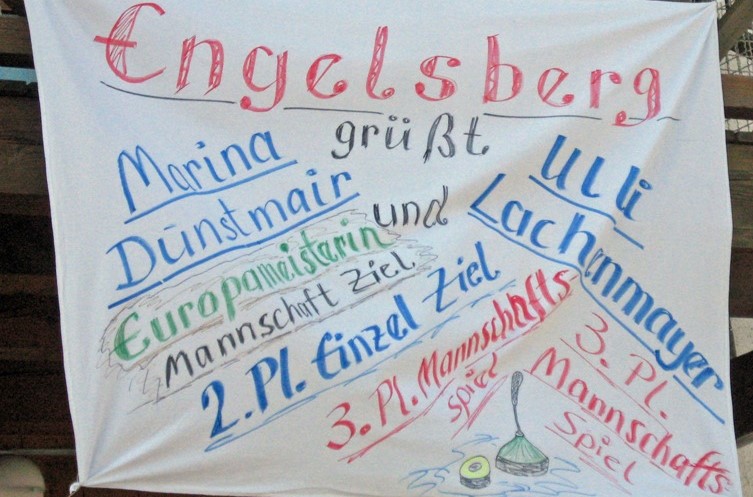 Engelsberg
grüßt.
Marina
Dünstmair
und
Ulli
Lachenmayer
Europameisterin
Mannschaft Ziel
2. Pl. Einzel Ziel
3. Pl. Mannschafts
spiel
3. Pl.
Mannschafts
Spiel